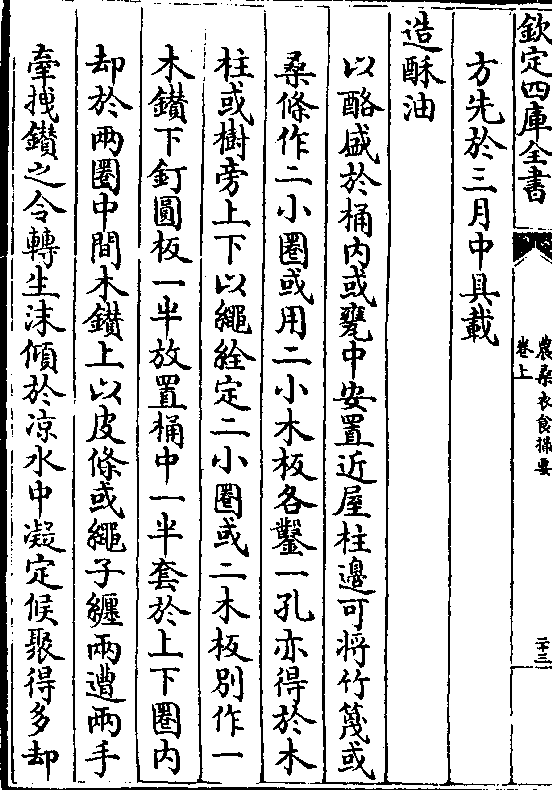 欽定四庫全書
農桑衣食撮要
卷上
二十三
方先於三月中具載
造酥油
以酪盛於桶內或甕中安置近屋柱邊可將竹篾或
桑條作二小圈或用二小木板各鑿一孔亦得於木
柱或樹旁上下以繩絟定二小圈或二木板別作一
木鑚下釘圓板一半放置桶中一半套於上下圈内
却於兩圈中間木鑚上以皮條或繩子纒兩遭兩手
牽拽鑚之令轉生沫傾於凉水中凝定候聚得多却